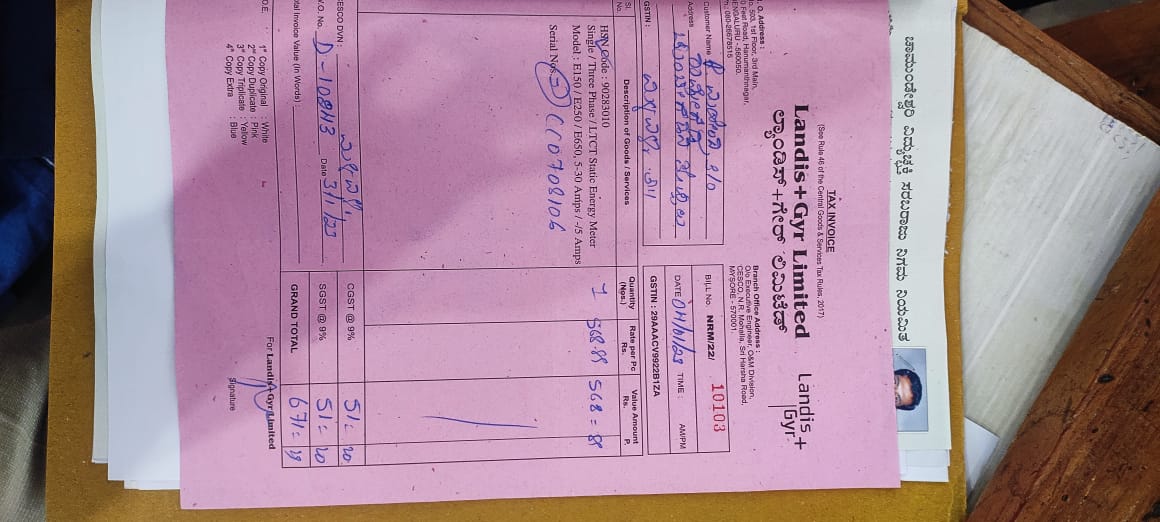 ಚಾಮುಂಡೇಶ್ವರಿ ವಿದ್ಯುಚ್ಛಕ್ತಿ ಸರಬರಾಜು ನಿಗಮ ನಿಯಮಿತ
TAX INVOICE
(See Rule 46 of the Central Goods & Services Tax Rules, 2017)
Landis+Gyr Limited
ಲ್ಯಾಂಡಿಸ್+ಗೇರ್ ಲಿಮಿಟೆಡ್
Landis+
Gyr
O. Address :
No. 503, 1st Floor, 3rd Main,
Feet Road, Hanumanthnagar,
BENGALURU - 560050.
Ph: 080-26678518
Branch Office Address :
O/o Executive Engineer, O&M Division,
CESCO, N.R. Mohalla, Sri Harsha Road,
MYSORE - 570001.
Customer Name
Address
GSTIN :
BILL No. NRM/22/ 10103
DATE: 04/01/23 TIME : AM/PM
GSTIN : 29AAACV9922B1ZA
Sl. No. Description of Goods / Services Quantity (Nos.) Rate per Pc Rs. Value Amount Rs. P.
HSN Code : 90283010
Single / Three Phase / LTCT Static Energy Meter
Model : E150 / E250 / E650, 5-30 Amps / -/5 Amps
1 568.89 568=89
Serial Nos. CC0708106
CESCO DVN :
CGST @ 9% 51=20
W.O. No. D-108H3 Date 3/1/23
SGST @ 9% 51=20
Total Invoice Value (In Words) :
GRAND TOTAL 671=29
O.E.
1st Copy Original : White
2nd Copy Duplicate : Pink
3rd Copy Triplicate : Yellow
4th Copy Extra : Blue
For Landis+Gyr Limited
Signature